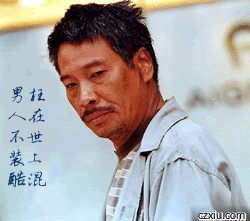 男人不装酷
枉在世上混
czxiu.com